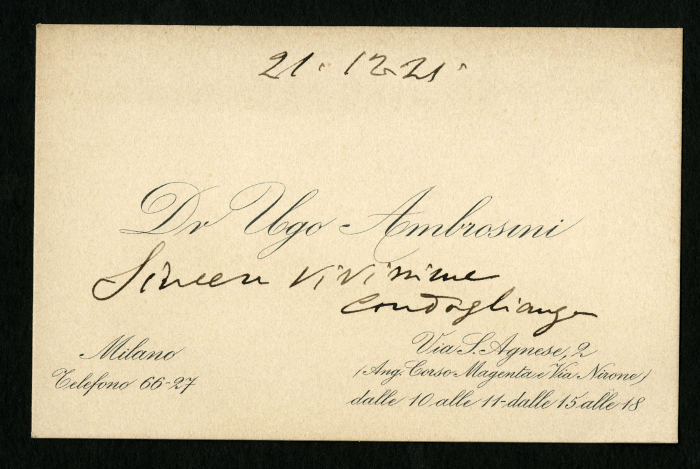 21·12·21·
Dr Ugo Ambrosini
Sincere vivissime
condoglianze
Milano
Telefono 66-27
Via S. Agnese, 2
(Ang. Corso Magenta e Via Nirone)
dalle 10 alle 11 - dalle 15 alle 18